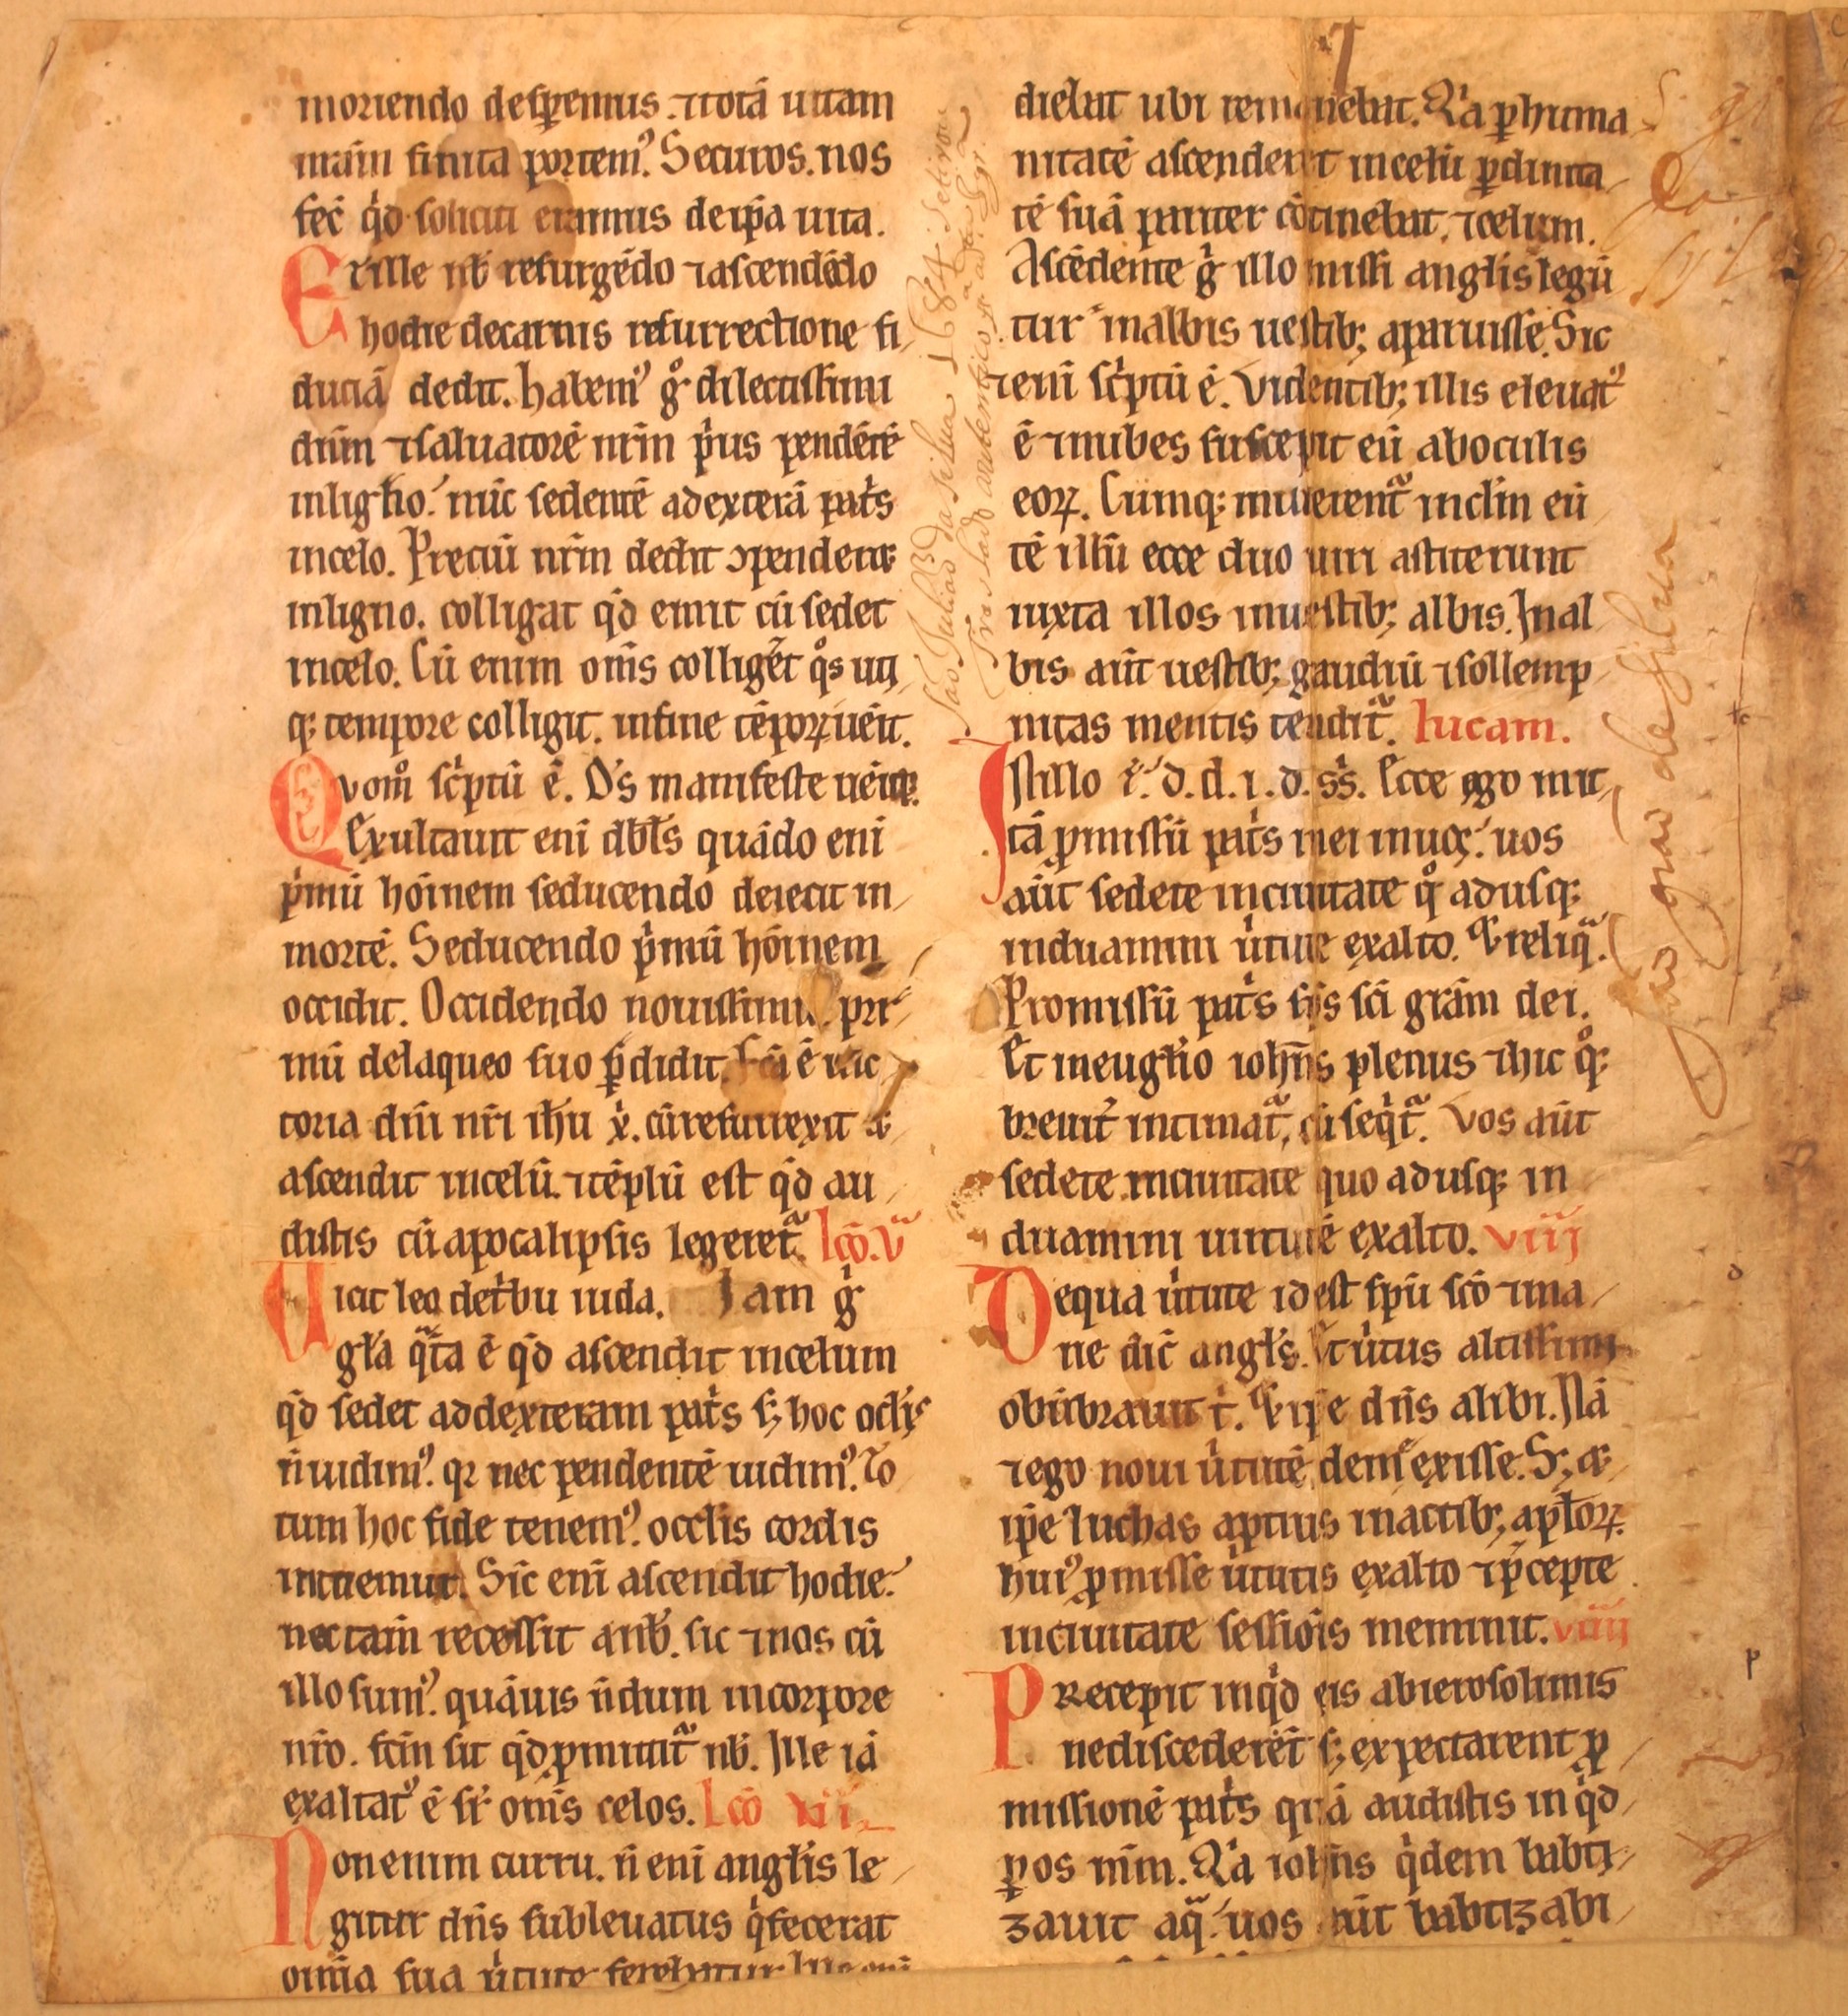 moriendo desperemus. ⁊totā uitam
mām finita portem⁹. Securos. nos
fec̄ q̇d soliciti eramus deip̄a uita.
Et ille nb̄ resurgēdo ⁊ascendēdo
hodie decarnis resurrectione fi
duciā dedit. habem⁹ g̊ dilectissimi
dn̄m ⁊saluatorē nr̄m p̓us pendētē
inligno. nūc sedentē adexterā pat̓s
incelo. Preciū nr̄m dedit ɔpendens
inligno. colligat q̇d emit cū sedet
incelo. Cū enim om̄s colligēt q̊s uti
q; tempore colligit. infine tēporꝝ uēit.
Quom̊ sc̓ptū ē. D̄s manifeste uēiet.
Exultauit enī dbl̄s quādo enī
p̓mū hōinem seducendo deiecit in
mortē. Seducendo p̓mū hōinem
occidit. Occidendo nouissimū pri
mū delaqueo suo ꝑdidit. Fc̄a ē uic
toria dn̄i nr̄i ih̄u x̓. cū resurrexit ⁊
ascendit incelū. ⁊īplū est q̇d au
distis cū apocalipsis legeret᷑. lc̄o. v
Uicit leo det̓bu iuda. Iam g̓
gl̄a q̄ta ē q̇d ascendit incelum
q̇d sedet addexteram pat̓s s; hoc ocl̓is
n̄ uidim⁹. qꝛ nec pendentē uidim⁹. To
tum hoc fide tenem⁹. occlis cordis
intuemur. Sic enī ascendit hodie.
nec tam̄ recessit a nb̄. sic ⁊nos cū
illo sum⁹. quāuis n̄dum incorpore
nr̄o. fc̄m sit q̇d ꝓmittit᷑ nb̄. Ille iā
exaltat⁹ ē sr̄ om̄s celos. Lc̄o vii
Non enim curru. n̄ enī angl̓is le
gitur dn̄s subleuatus q̓fecerat
om̄ia sua u̓tute ferebatur
diebat ubi remanebat. Q̓a ꝑhuma
nitatē ascenderat incelū ꝑdiuini
tē suā pariter cōtinebat. ⁊celum.
Ascēdente g̓ illo missi angl̓is legū
tur inalbis uestib; aparuisse. Sic
⁊enī sc̓ptū ē. Videntib; illis eleuat⁹
ē ⁊nubes suscepit eū aboculis
eorꝝ. Cūmq; intuerent᷑ incl̄m eū
tē illū ecce duo uiri astiterunt
iuxta illos inuestib; albis. Inal
bis aūt uestib; gaudiū ⁊sollemp
nitas mentis tendit᷑. lucam.
Istillo t̓. d. d. i. d. ss. Ecce ego mit
tā ꝓmissū pat̓s mei inuos. uos
aūt sedete inciuitate q̊ adusq;
induamini u̓tute exalto. Et reliq᷑.
Promissū pat̓s filis sc̄i grām dei.
Et ineugl̓io ioh̄ns plenus ⁊hic q̊;
breuit̓ intimat᷑, cū seq̇t᷑. Vos aūt
sedete inciuitate quo adusq; in
duamini uirtutē exalto. viij
Dequa u̓tute idest sp̄ū sc̄o ⁊ma
ne dic̄ angl̓s. Et u̓tus altissimi
obūbrauit t̓. Et ip̄e dn̄s alibi. Nā
⁊ego noui u̓tutē deme exisse. S; ⁊
ip̄e luchas aptius inactib; apl̓orꝝ.
hui⁹ ꝓmisse u̓tutis exalto ⁊p̄cepte
inciuitate sessiōis meminit. viiij
Precepit inq̇d eis abierosolimis
nediscederēt s; expectarent ꝓ
missionē pat̓s quā audistis inq̇d
ꝑos mm̄. Q̓a ioh̄ns q̓dem babti
zauit aq᷑. uos aūt babtizabi
São Julião da silua 1684
São gião de silua